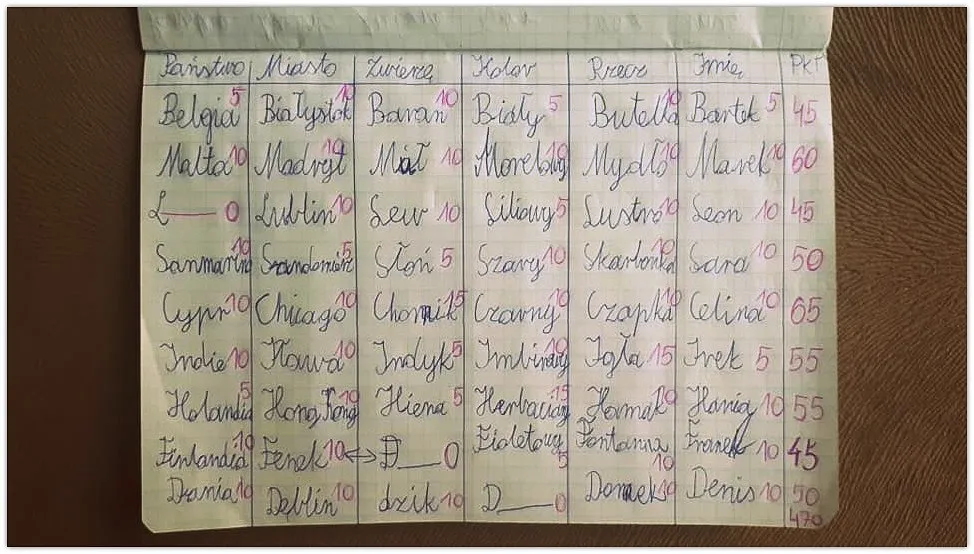 Państwo Miasto Zwierzę Kolor Rzecz Imię Pkt
Belgia 5 Białystok 10 Baran 10 Biały 5 Butelka 10 Bartek 5 45
Malta 10 Madryt 10 Mół 10 Morelowy 10 Mydło 10 Marek 10 60
L— 0 Lublin 10 Lew 10 Liliowy 5 Lustro 10 Leon 10 45
Sanmarino 10 Sandomierz 5 Słoń 5 Szary 10 Skarbonka 10 Sara 10 50
Cypr 10 Chicago 10 Chomik 15 Czarny 10 Czapka 10 Celina 10 65
Indie 10 Iława 10 Indyk 5 Imbirowy 10 Igła 15 Irek 5 55
Holandia 5 Hong Kong 10 Hiena 5 Herbaciany 15 Hamak 10 Hania 10 55
Finlandia 10 Fenek 10 ↔ F— 0 Fioletowy 5 Fontanna 10 Franek 10 45
Dania 10 Dęblin 10 dzik 10 D— 0 Domek 10 Denis 10 50
470